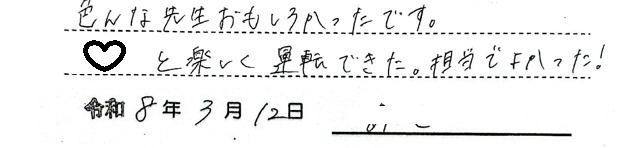 色んな先生おもしろかったです。
♡と楽しく運転できた。担当でよかった！
令和8年3月12日